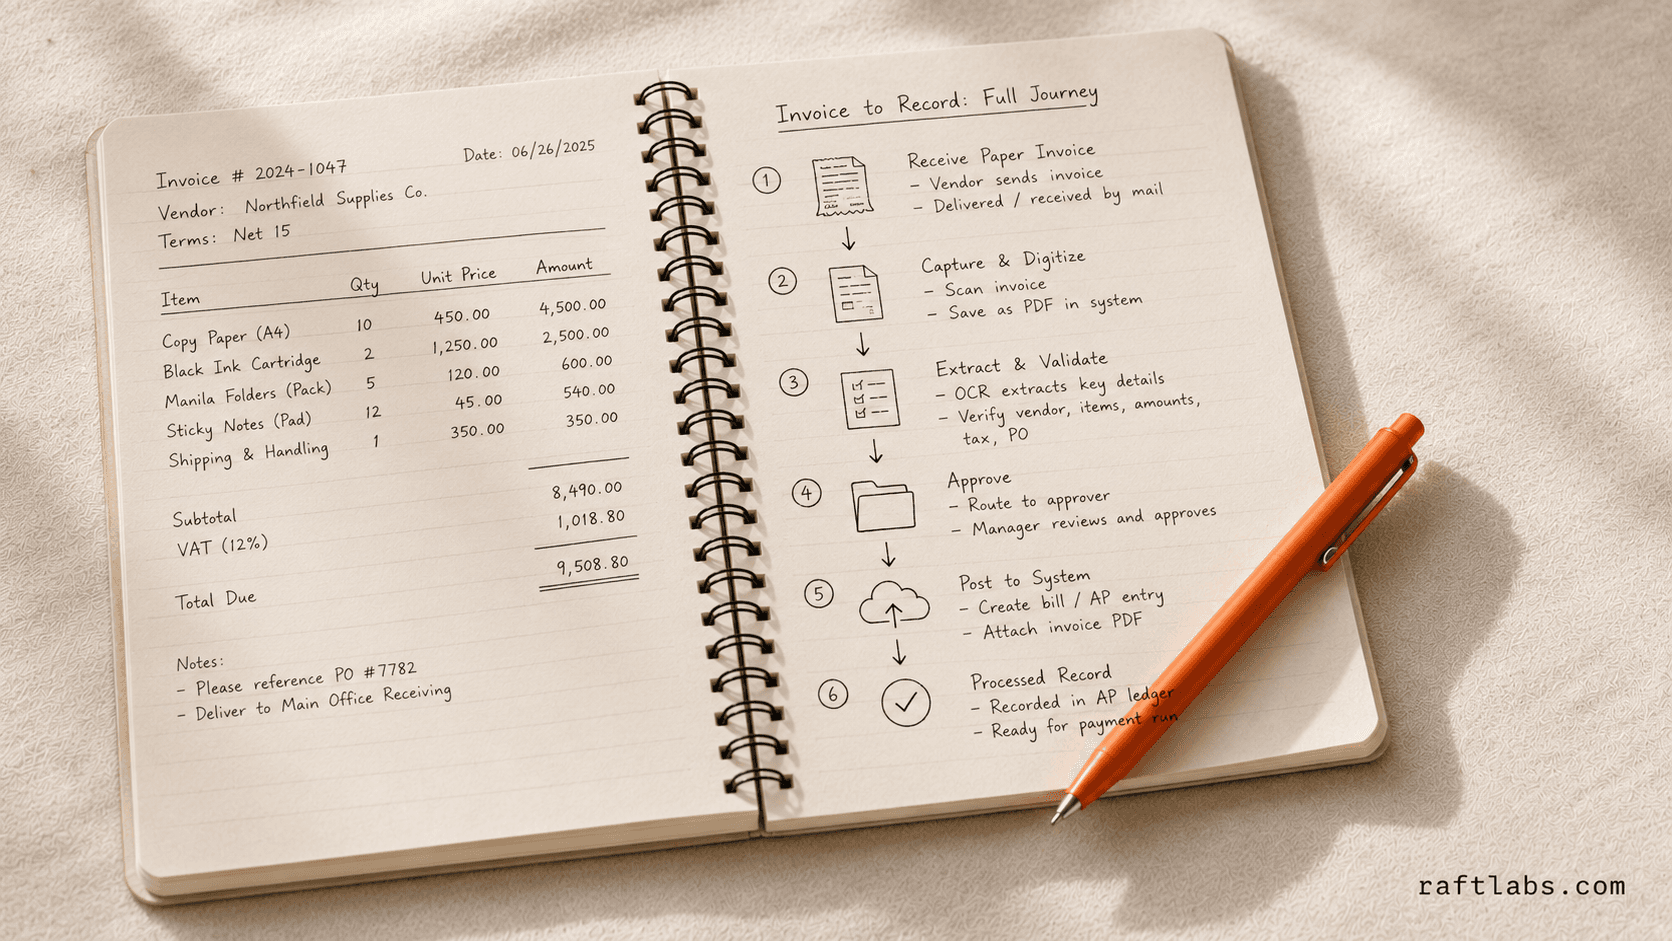 Invoice # 2024-1047
Date: 06/26/2025
Vendor: Northfield Supplies Co.
Terms: Net 15
Item Qty Unit Price Amount
Copy Paper (A4) 10 450.00 4,500.00
Black Ink Cartridge 2 1,250.00 2,500.00
Manila Folders (Pack) 5 120.00 600.00
Sticky Notes (Pad) 12 45.00 540.00
Shipping & Handling 1 350.00 350.00
Subtotal 8,490.00
VAT (12%) 1,018.80
Total Due 9,508.80
Notes:
- Please reference PO #7782
- Deliver to Main Office Receiving
Invoice to Record: Full Journey
1 Receive Paper Invoice
- Vendor sends invoice
- Delivered / received by mail
2 Capture & Digitize
- Scan invoice
- Save as PDF in system
3 Extract & Validate
- OCR extracts key details
- Verify vendor, items, amounts,
tax, PO
4 Approve
- Route to approver
- Manager reviews and approves
5 Post to System
- Create bill / AP entry
- Attach invoice PDF
6 Processed Record
- Recorded in AP ledger
- Ready for payment run
raftlabs.com